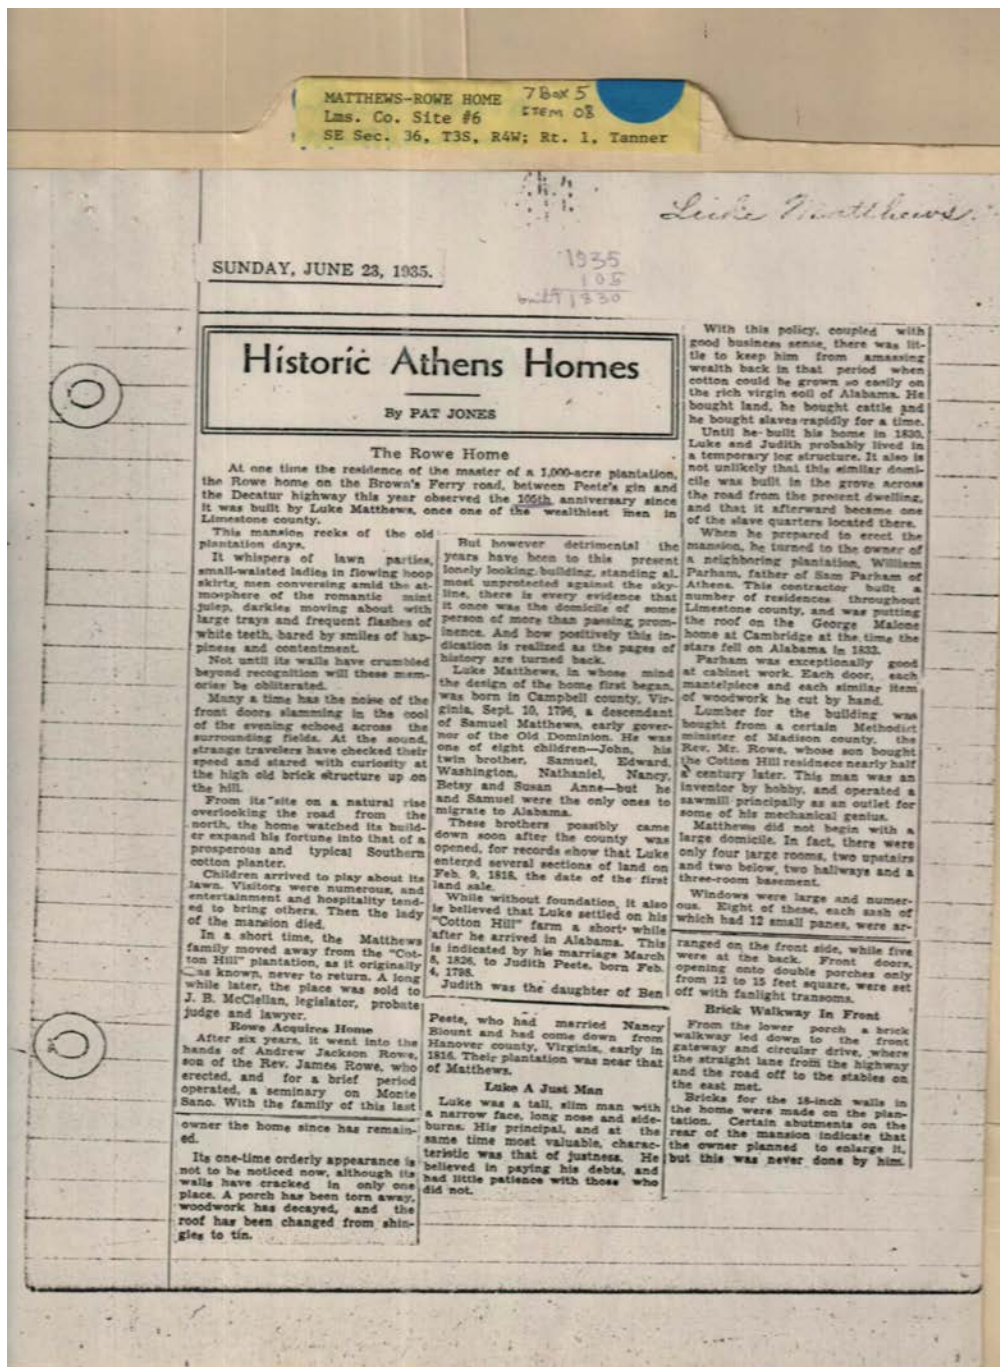 MATTHEWS-ROWE HOME 7 Box 5
Lms. Co. Site #6 ITEM 08
SE Sec. 36, T3S, R4W; Rt. 1, Tanner
Luke Matthews
SUNDAY, JUNE 23, 1935.
1935
105
built 1830
Historic Athens Homes
By PAT JONES
The Rowe Home
At one time the residence of the master of a 1,000-acre plantation,
the Rowe home on the Brown's Ferry road, between Peete's gin and
the Decatur highway this year observed the 105th anniversary since
it was built by Luke Matthews, once one of the wealthiest men in
Limestone county.
This mansion reeks of the old
plantation days.
It whispers of lawn parties,
small-waisted ladies in flowing hoop
skirts, men conversing amid the at-
mosphere of the romantic mint
julep, darkies moving about with
large trays and frequent flashes of
white teeth, bared by smiles of hap-
piness and contentment.
Not until its walls have crumbled
beyond recognition will these mem-
ories be obliterated.
Many a time has the noise of the
front doors slamming in the cool
of the evening echoed across the
surrounding fields. At the sound,
strange travelers have checked their
speed and stared with curiosity at
the high old brick structure up on
the hill.
From its site on a natural rise
overlooking the road from the
north, the home watched its build-
er expand his fortune into that of a
prosperous and typical Southern
cotton planter.
Children arrived to play about its
lawn. Visitors were numerous, and
entertainment and hospitality tend-
ed to bring others. Then the lady
of the mansion died.
In a short time, the Matthews
family moved away from the "Cot-
ton Hill" plantation, as it originally
was known, never to return. A long
while later, the place was sold to
J. B. McClellan, legislator, probate
judge and lawyer.
Rowe Acquires Home
After six years, it went into the
hands of Andrew Jackson Rowe,
son of the Rev. James Rowe, who
erected, and for a brief period
operated, a seminary on Monte
Sano. With the family of this last
owner the home since has remain-
ed.
Its one-time orderly appearance is
not to be noticed now, although its
walls have cracked in only one
place. A porch has been torn away,
woodwork has decayed, and the
roof has been changed from shin-
gles to tin.
But however detrimental the
years have been to this present
lonely looking building, standing al-
most unprotected against the sky-
line, there is every evidence that
it once was the domicile of some
person of more than passing prom-
inence. And how positively this in-
dication is realized as the pages of
history are turned back.
Luke Matthews, in whose mind
the design of the home first began,
was born in Campbell county, Vir-
ginia, Sept. 10, 1796, a descendant
of Samuel Matthews, early gover-
nor of the Old Dominion. He was
one of eight children—John, his
twin brother, Samuel, Edward,
Washington, Nathaniel, Nancy,
Betsy and Susan Anne—but he
and Samuel were the only ones to
migrate to Alabama.
These brothers possibly came
down soon after the county was
opened, for records show that Luke
entered several sections of land on
Feb. 9, 1818, the date of the first
land sale.
While without foundation, it also
is believed that Luke settled on his
"Cotton Hill" farm a short while
after he arrived in Alabama. This
is indicated by his marriage March
8, 1826, to Judith Peete, born Feb.
4, 1798.
Judith was the daughter of Ben
Peete, who had married Nancy
Blount and had come down from
Hanover county, Virginia, early in
1816. Their plantation was near that
of Matthews.
Luke A Just Man
Luke was a tall, slim man with
a narrow face, long nose and side-
burns. His principal, and at the
same time most valuable, charac-
teristic was that of justness. He
believed in paying his debts, and
had little patience with those who
did not.
With this policy, coupled with
good business sense, there was lit-
tle to keep him from amassing
wealth back in that period when
cotton could be grown so easily on
the rich virgin soil of Alabama. He
bought land, he bought cattle and
he bought slaves rapidly for a time.
Until he built his home in 1830,
Luke and Judith probably lived in
a temporary log structure. It also is
not unlikely that this similar domi-
cile was built in the grove across
the road from the present dwelling,
and that it afterward became one
of the slave quarters located there.
When he prepared to erect the
mansion, he turned to the owner of
a neighboring plantation, William
Parham, father of Sam Parham of
Athens. This contractor built a
number of residences throughout
Limestone county, and was putting
the roof on the George Malone
home at Cambridge at the time the
stars fell on Alabama in 1833.
Parham was exceptionally good
at cabinet work. Each door, each
mantelpiece and each similar item
of woodwork he cut by hand.
Lumber for the building was
bought from a certain Methodist
minister of Madison county, the
Rev. Mr. Rowe, whose son bought
the Cotton Hill residnece nearly half
a century later. This man was an
inventor by hobby, and operated a
sawmill principally as an outlet for
some of his mechanical genius.
Matthews did not begin with a
large domicile. In fact, there were
only four large rooms, two upstairs
and two below, two hallways and a
three-room basement.
Windows were large and numer-
ous. Eight of these, each sash of
which had 12 small panes, were ar-
ranged on the front side, while five
were at the back. Front doors,
opening onto double porches only
from 12 to 15 feet square, were set
off with fanlight transoms.
Brick Walkway In Front
From the lower porch a brick
walkway led down to the front
gateway and circular drive, where
the straight lane from the highway
and the road off to the stables on
the east met.
Bricks for the 18-inch walls in
the home were made on the plan-
tation. Certain abutments on the
rear of the mansion indicate that
the owner planned to enlarge it,
but this was never done by him.